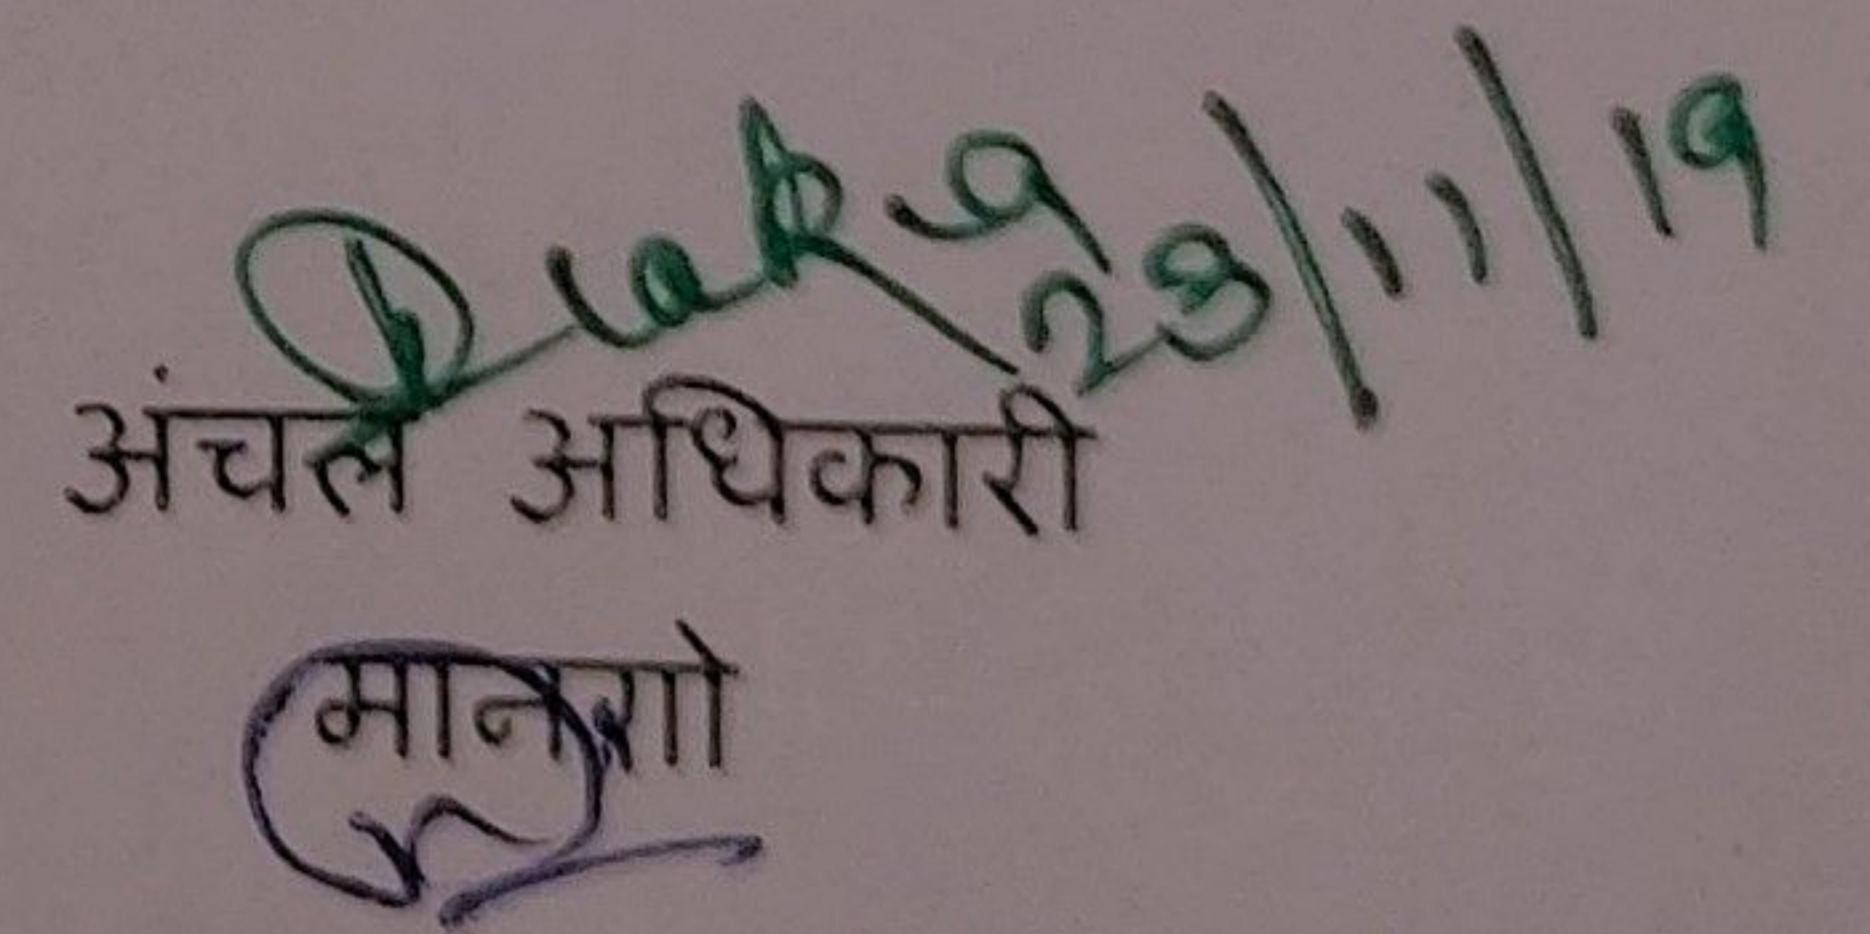 23/11/19
अंचल अधिकारी
मानगो